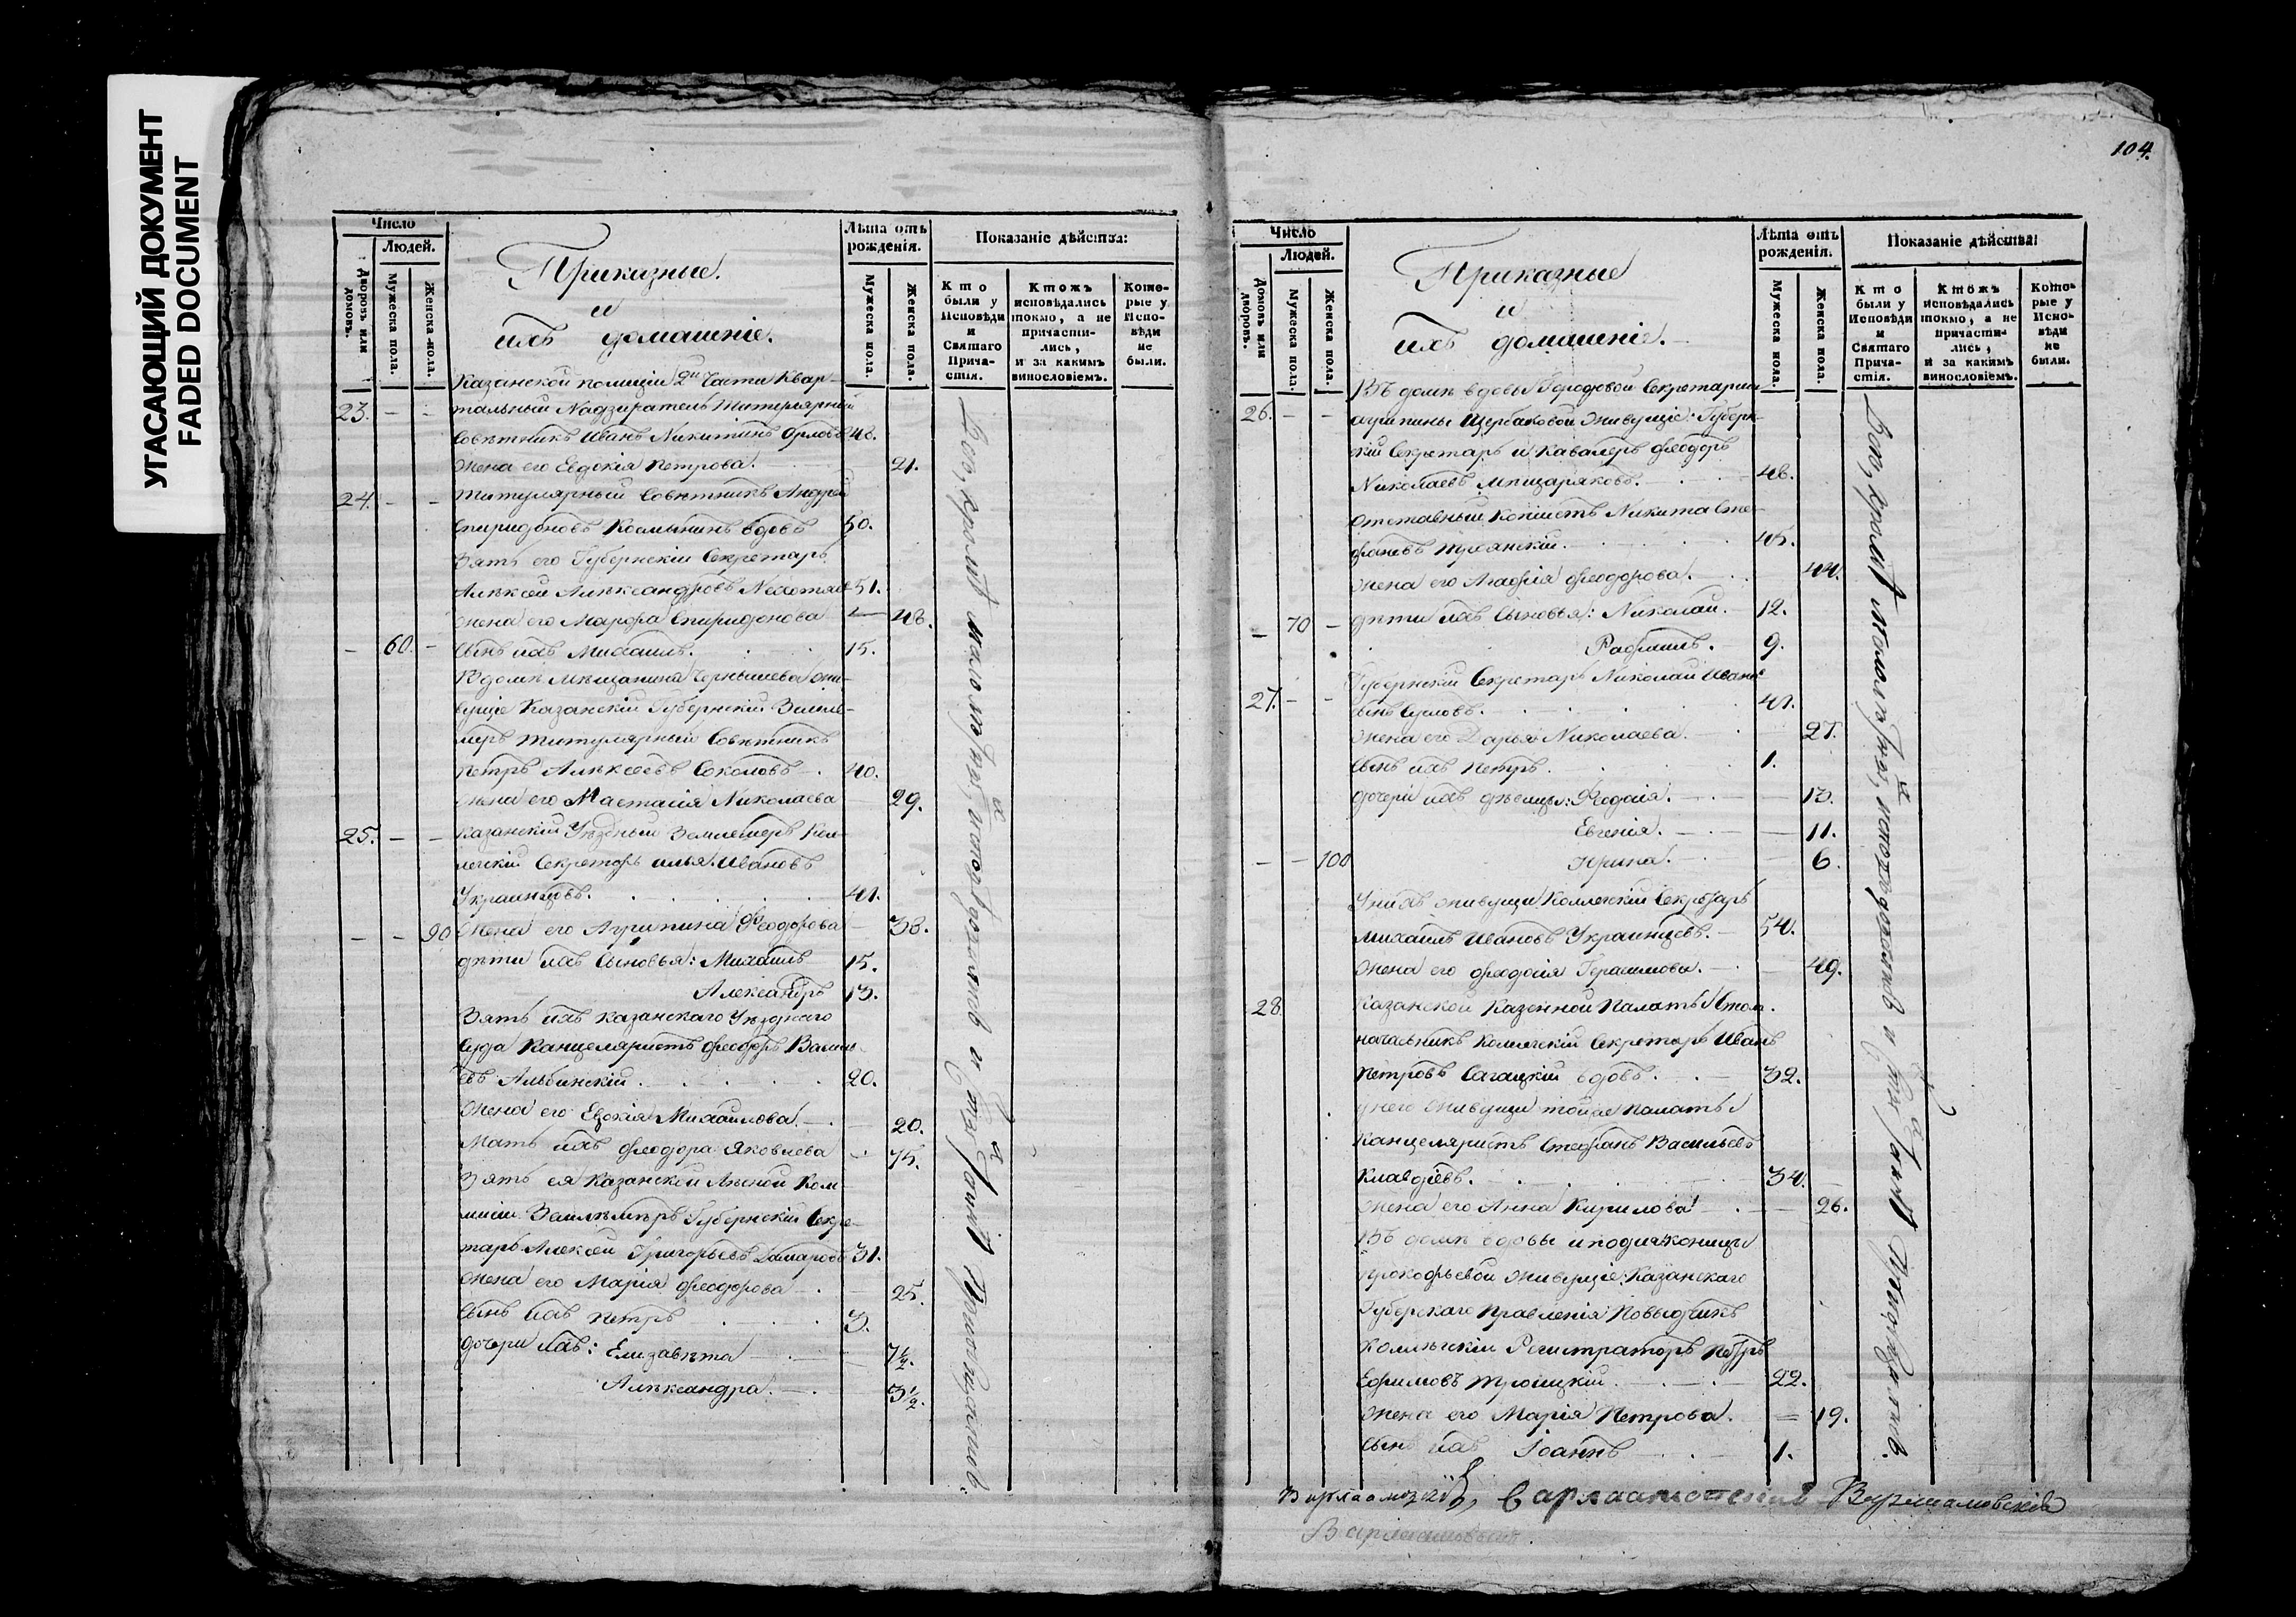 УГАСАЮЩИЙ ДОКУМЕНТ
FADED DOCUMENT
Число
Людей.
Дворовъ или домовъ.
Мужеска пола.
Женска пола.
Приказные
и
ихъ домашніе.
Лѣта отъ рожденія.
Мужеска пола.
Женска пола.
Показаніе дѣйства:
Кто были у Исповѣди и Святаго Причастія.
Ктожъ исповѣдались токмо, а не причастились, и за какимъ винословіемъ.
Которые у Исповѣди не были.
Казанской полиціи 2й Части Квар-
23. - - тальный Надзиратель Титулярный
Совѣтникъ Иванъ Никитинъ Орловъ 48.
Жена его Евдокія Петрова. 21.
24. - - Титулярный Совѣтникъ Андрей
Спиридоновъ Космынинъ вдовъ 50.
Зять его Губернскій Секретарь
Алѣксей Алѣксандровъ 51.
жена его Марфа Спиридонова 48.
- 60. - Сынъ ихъ Михаилъ. 15.
В домѣ мѣщанина Чернышева жи-
вущіе Казанскій Губернскій Землѣ-
меръ Титулярный Совѣтникъ
Петръ Алѣксѣевъ Соколовъ 40.
жена его Настасія Николаева 29.
25. - - Казанскій Уѣздный Землемеръ Кол-
лежскій Секретарь Илья Ивановъ
Украинцовъ. 41.
- - 90 Жена его Агрипина Феодорова 38.
дѣти ихъ Сыновья: Михаилъ 15.
Александръ 13.
Зять ихъ Казанскаго Уѣзднаго
Суда Канцеляристъ Феодоръ Василь-
евъ Альбинскій. 20.
Жена его Евдокія Михаилова. 20.
Мать ихъ Феодора Яковлева 75.
Зять ея Казанской Лѣсной Ком-
мисіи Землѣмѣръ Губернскій Секре-
тарь Алексѣй Григорьевъ 31.
Жена его Марія Феодорова 25.
Сынъ ихъ Петръ 3.
дочери ихъ: Елизавѣта 7½.
Алѣксандра. 3½.
Всѣ, кромѣ малолѣтныхъ, исповѣдались и Святыхъ Таинъ Пріобщались.
104.
Число
Людей.
Домовъ или дворовъ.
Мужеска пола.
Женска пола.
Приказные
и
ихъ домашніе.
Лѣта отъ рожденія.
Мужеска пола.
Женска пола.
Показаніе дѣйства:
Кто были у Исповѣди и Святаго Причастія.
Ктожъ исповѣдались токмо, а не причастились, и за какимъ винословіемъ.
Которые у Исповѣди не были.
Въ домѣ вдовы Городовой Секретарши
26. - - Агрипины Щербаковой живущіе: Губерн-
скій Секретарь и Кавалеръ Феодоръ
Николаевъ 48.
Отставный Копіистъ Никита Сте-
фановъ 45.
Жена его Агафія Феодорова. 44.
- 70 - дѣти ихъ Сыновья: Николай. 12.
Рафаилъ. 9.
Губернскій Секретарь Николай Ивановъ
27. - - сынъ Сусловъ. 41.
Жена его Дарья Николаева. 27.
Сынъ ихъ Петръ. 1.
дочери ихъ дѣвицы: Феодосія. 13.
Евгенія. 11.
- - 100 Ирина. 6.
У нихъ живущіи Коллежскій Секретарь
Михаилъ Ивановъ Украинцевъ. 54.
Жена его Феодосія Герасимова. 49.
28. Казанской Казенной Палаты Стола-
начальникъ Коллежскій Секретарь Иванъ
Петровъ Сагацкій вдовъ. 32.
у него живущи той же Палаты
Канцеляристъ Стефанъ Васильевъ
Клавдіевъ. 34.
Жена его Анна Кирилова 26.
Въ домѣ вдовы иподіаконицы
Прокофьевой живущіе: Казанскаго
Губерскаго Правленія Повытчикъ
Колѣжскій Регистраторъ Петръ
Ефимовъ Троицкій. 22.
Жена его Марія Петрова. 19.
Сынъ ихъ Іоаннъ 1.
Всѣ, кромѣ малолѣтныхъ, исповѣдались и Святыхъ Таинъ Пріобщались.